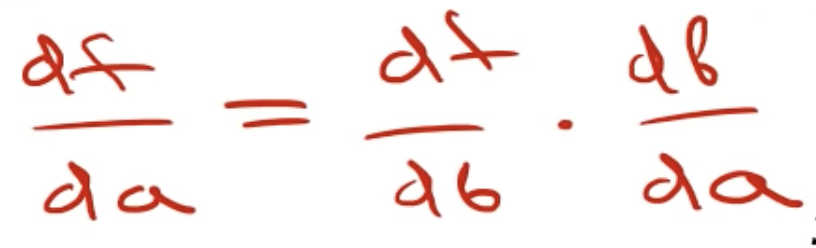 df/da = df/db · db/da